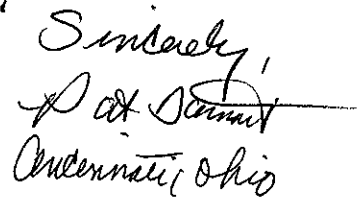 Sincerely,
Pat
Cincinnati, Ohio